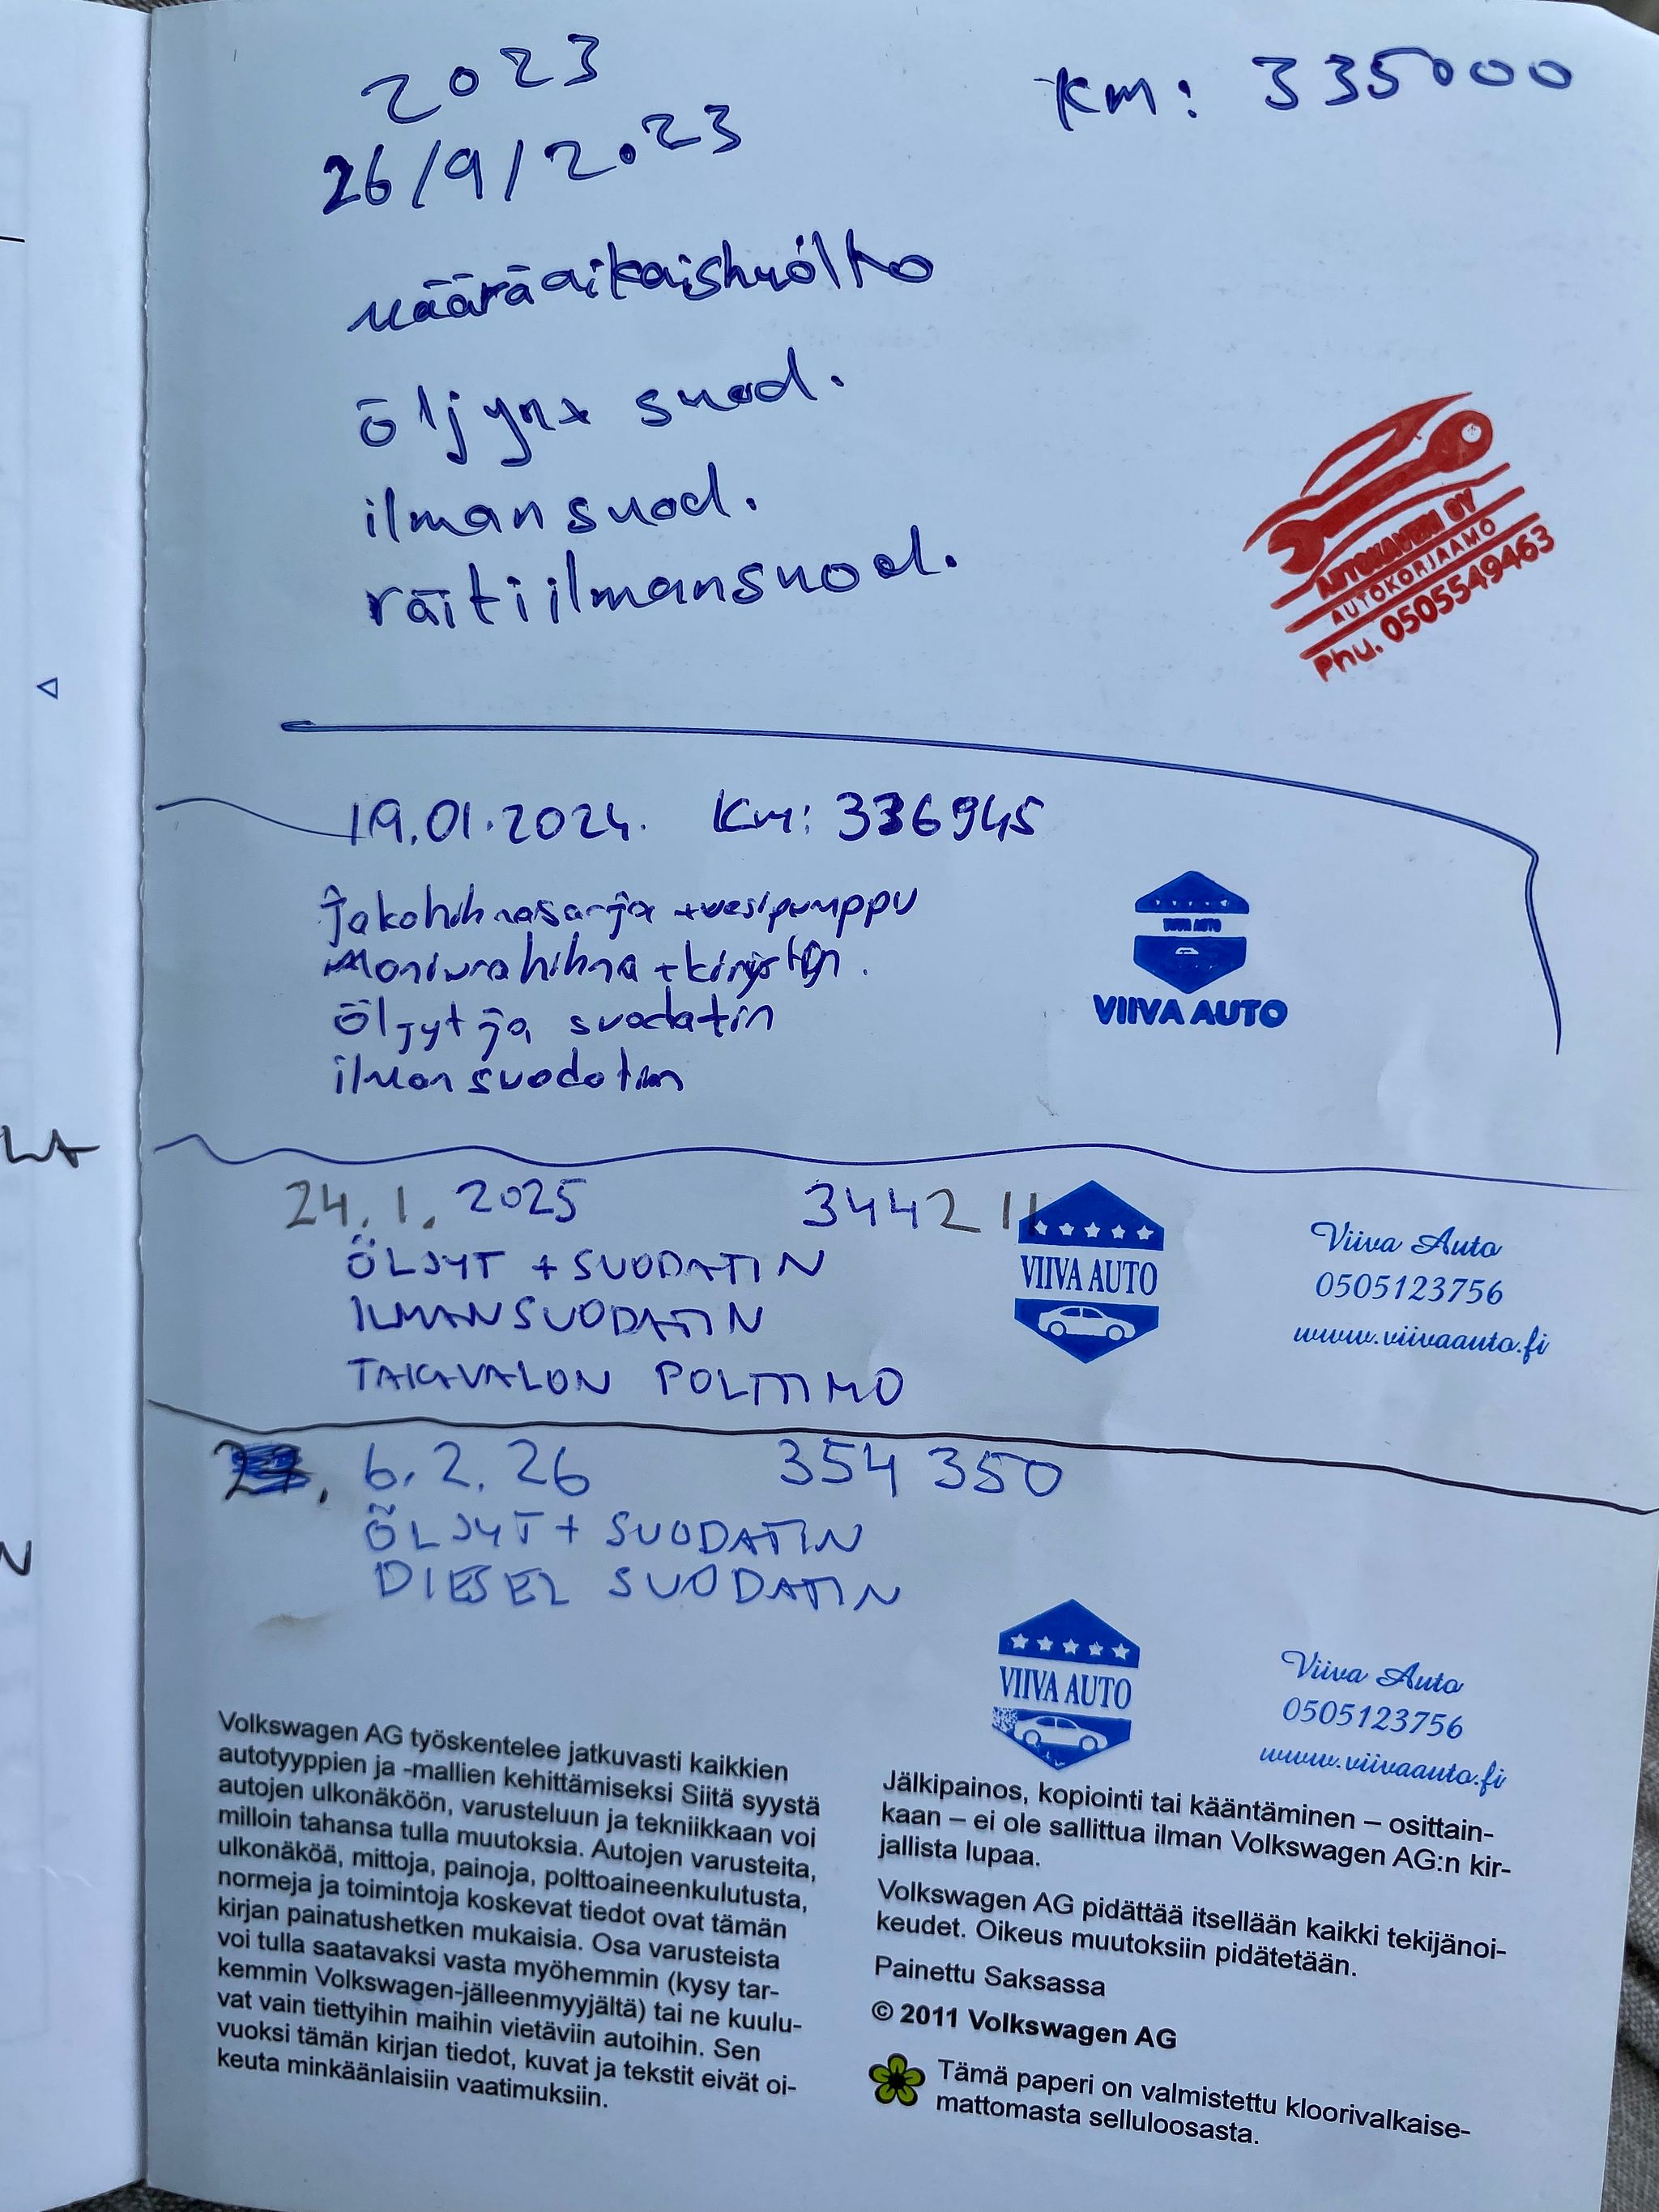 2023
Km: 335000
26/9/2023
määräaikaishuolto
öljynx suod.
ilmansuod.
räitiilmansuod.
AUTOKORJAAMO
Phu. 0505549463
19.01.2024. Km: 336945
Jakohihnasarja +vesipumppu
Moniurahihna +kiristin.
Öljyt ja suodatin
ilmansuodatin
VIIVA AUTO
VIIVA AUTO
24.1. 2025 344211
ÖLJYT + SUODATIN
ILMANSUODATIN
TAKAVALON POLTTIMO
VIIVA AUTO
Viiva Auto
0505123756
www.viivaauto.fi
6.2.26 354350
ÖLJYT + SUODATIN
DIESEL SUODATIN
VIIVA AUTO
Viiva Auto
0505123756
www.viivaauto.fi
Volkswagen AG työskentelee jatkuvasti kaikkien
autotyyppien ja -mallien kehittämiseksi Siitä syystä
autojen ulkonäköön, varusteluun ja tekniikkaan voi
milloin tahansa tulla muutoksia. Autojen varusteita,
ulkonäköä, mittoja, painoja, polttoaineenkulutusta,
normeja ja toimintoja koskevat tiedot ovat tämän
kirjan painatushetken mukaisia. Osa varusteista
voi tulla saatavaksi vasta myöhemmin (kysy tar-
kemmin Volkswagen-jälleenmyyjältä) tai ne kuulu-
vat vain tiettyihin maihin vietäviin autoihin. Sen
vuoksi tämän kirjan tiedot, kuvat ja tekstit eivät oi-
keuta minkäänlaisiin vaatimuksiin.
Jälkipainos, kopiointi tai kääntäminen – osittain-
kaan – ei ole sallittua ilman Volkswagen AG:n kir-
jallista lupaa.
Volkswagen AG pidättää itsellään kaikki tekijänoi-
keudet. Oikeus muutoksiin pidätetään.
Painettu Saksassa
© 2011 Volkswagen AG
Tämä paperi on valmistettu kloorivalkaise-
mattomasta selluloosasta.